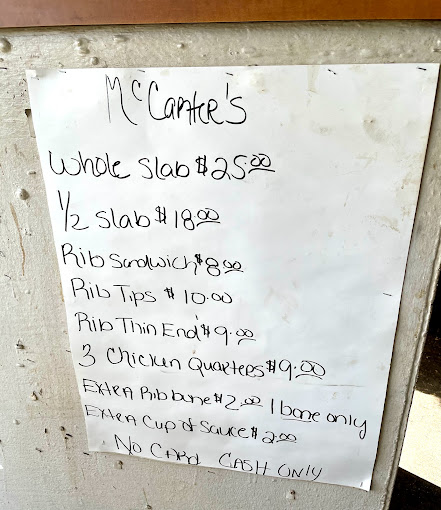 McCanter's
Whole Slab $25.00
1/2 Slab $18.00
Rib Sandwich $8.00
Rib Tips $10.00
Rib Thin End $9.00
3 Chicken Quarters $9.00
Extra Rib bone $2.00 1 bone only
Extra Cup of Sauce $2.00
No Card Cash Only